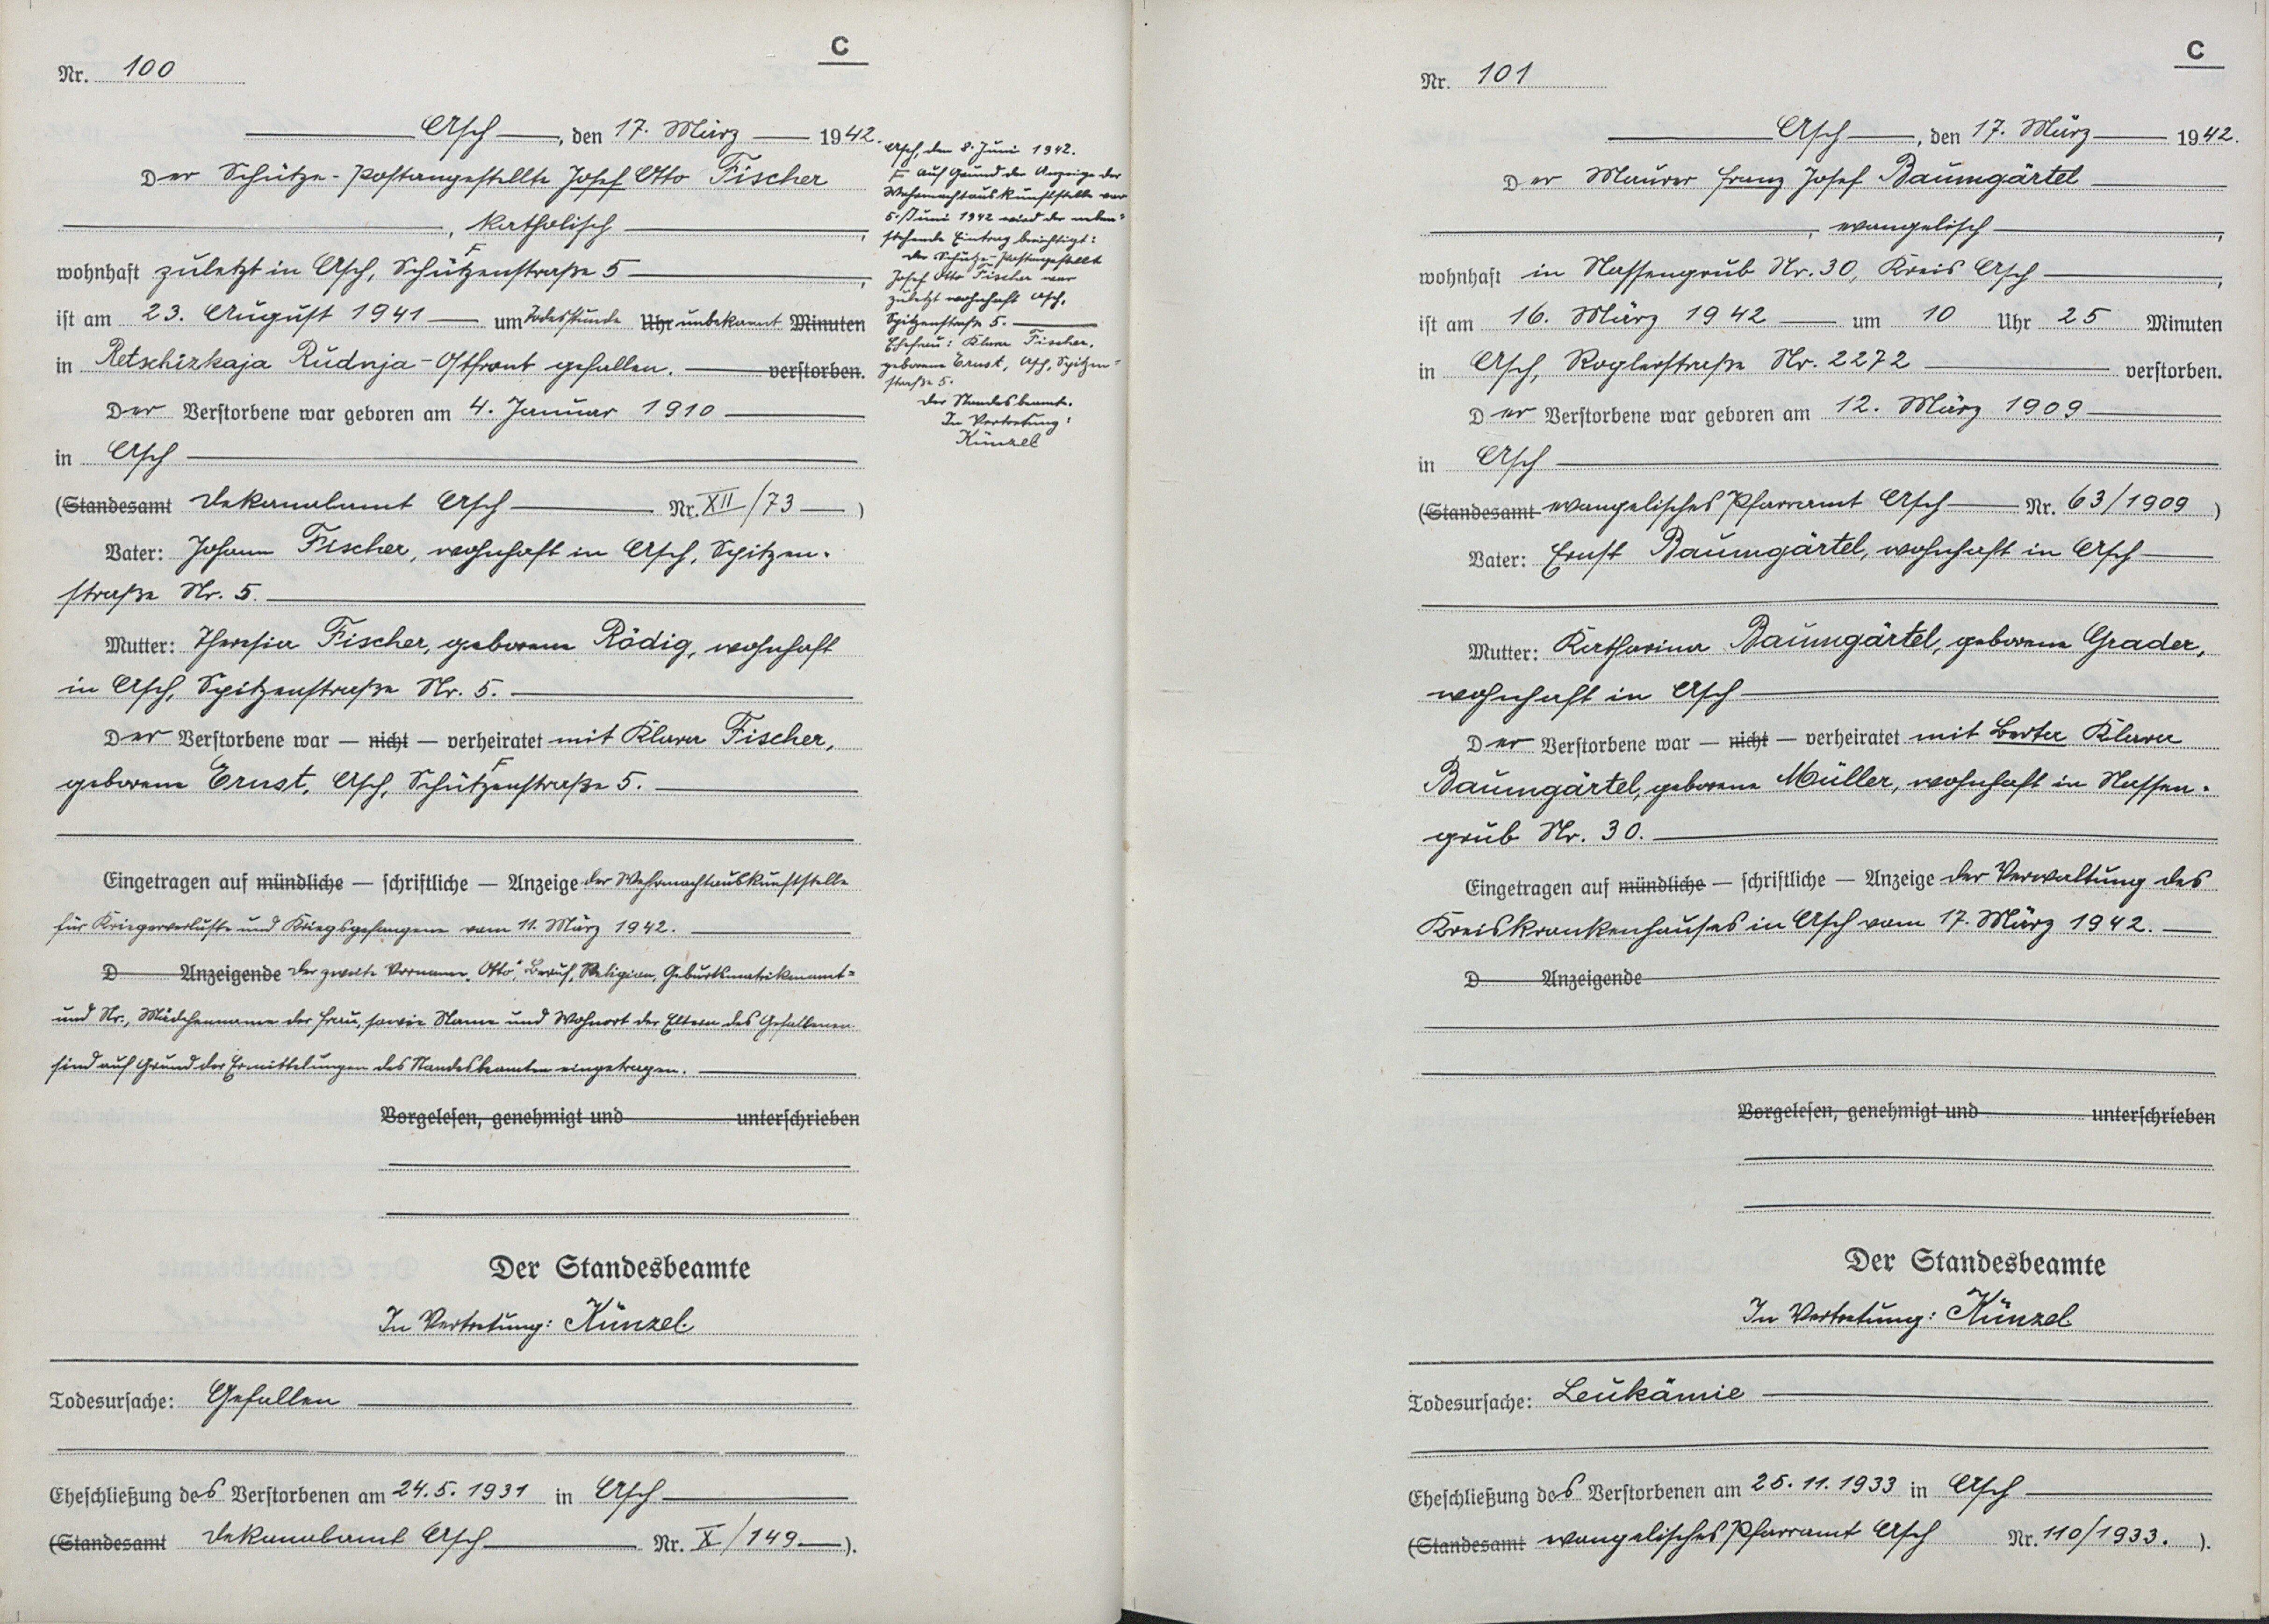 C
Nr. 100
Asch, den 17. März 1942.
Der Schütze-Postangestellte Josef Otto Fischer
, katholisch,
wohnhaft zuletzt in Asch, Schützenstraße 5,
F
ist am 23. August 1941 um Todesstunde Uhr unbekannt Minuten
in Retschizkaja Rudnja-Ostfront gefallen. verstorben.
Der Verstorbene war geboren am 4. Januar 1910
in Asch
(Standesamt Dekanalamt Asch Nr. XII/73)
Vater: Johann Fischer, wohnhaft in Asch, Spitzen-
straße Nr. 5.
Mutter: Theresia Fischer, geborene Rödig, wohnhaft
in Asch, Spitzenstraße Nr. 5.
Der Verstorbene war — nicht — verheiratet mit Klara Fischer,
F
geborene Ernst, Asch, Schützenstraße 5.
Eingetragen auf mündliche — schriftliche — Anzeige der Wehrmachtauskunftstelle
für Kriegerverluste und Kriegsgefangene vom 11. März 1942.
D Anzeigende Der zweite Vorname „Otto", Beruf, Religion, Geburtsmatrikenamt-
und Nr., Mädchenname der Frau, sowie Name und Wohnort der Eltern des Gefallenen
sind auf Grund der Ermittelungen des Standesbeamten eingetragen.
Vorgelesen, genehmigt und unterschrieben
Der Standesbeamte
In Vertretung: Künzel.
Todesursache: Gefallen
Eheschließung des Verstorbenen am 24.5.1931 in Asch
(Standesamt Dekanalamt Asch Nr. X/149).
Asch, den 8. Juni 1942.
F Auf Grund der Anzeige der
Wehrmachtauskunftstelle vom
5. Juni 1942 wird der neben-
stehende Eintrag berichtigt:
Der Schütze-Postangestellte
Josef Otto Fischer war
zuletzt wohnhaft Asch,
Spitzenstraße 5.
Ehefrau: Klara Fischer,
geborene Ernst, Asch, Spitzen-
straße 5.
Der Standesbeamte.
In Vertretung:
Künzel
C
Nr. 101
Asch, den 17. März 1942.
Der Maurer Franz Josef Baumgärtel
, evangelisch,
wohnhaft in Nassengrub Nr. 30, Kreis Asch,
ist am 16. März 1942 um 10 Uhr 25 Minuten
in Asch, Roglerstraße Nr. 2272 verstorben.
Der Verstorbene war geboren am 12. März 1909
in Asch
(Standesamt evangelisches Pfarramt Asch Nr. 63/1909)
Vater: Ernst Baumgärtel, wohnhaft in Asch
Mutter: Katharina Baumgärtel, geborene Grader,
wohnhaft in Asch
Der Verstorbene war — nicht — verheiratet mit Berta Klara
Baumgärtel, geborene Müller, wohnhaft in Nassen-
grub Nr. 30.
Eingetragen auf mündliche — schriftliche — Anzeige der Verwaltung des
Kreiskrankenhauses in Asch vom 17. März 1942.
D Anzeigende
Vorgelesen, genehmigt und unterschrieben
Der Standesbeamte
In Vertretung: Künzel.
Todesursache: Leukämie
Eheschließung des Verstorbenen am 25.11.1933 in Asch
(Standesamt evangelisches Pfarramt Asch Nr. 110/1933.).